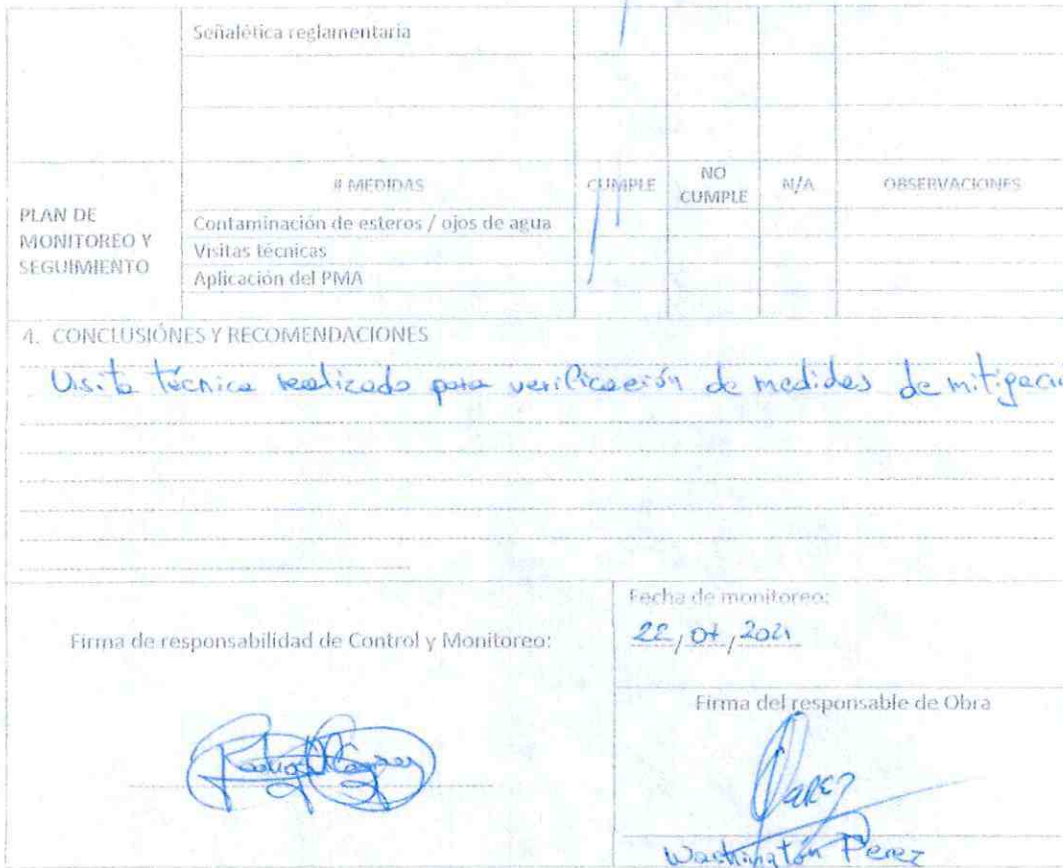 Señalética reglamentaria
# MEDIDAS CUMPLE NO CUMPLE N/A OBSERVACIONES
PLAN DE MONITOREO Y SEGUIMIENTO
Contaminación de esteros / ojos de agua
Visitas técnicas
Aplicación del PMA
4. CONCLUSIÓNES Y RECOMENDACIONES
Visita técnica realizada para verificación de medidas de mitigació
Firma de responsabilidad de Control y Monitoreo:
Fecha de monitoreo:
22/07/2021
Firma del responsable de Obra
Perez
Washington Perez